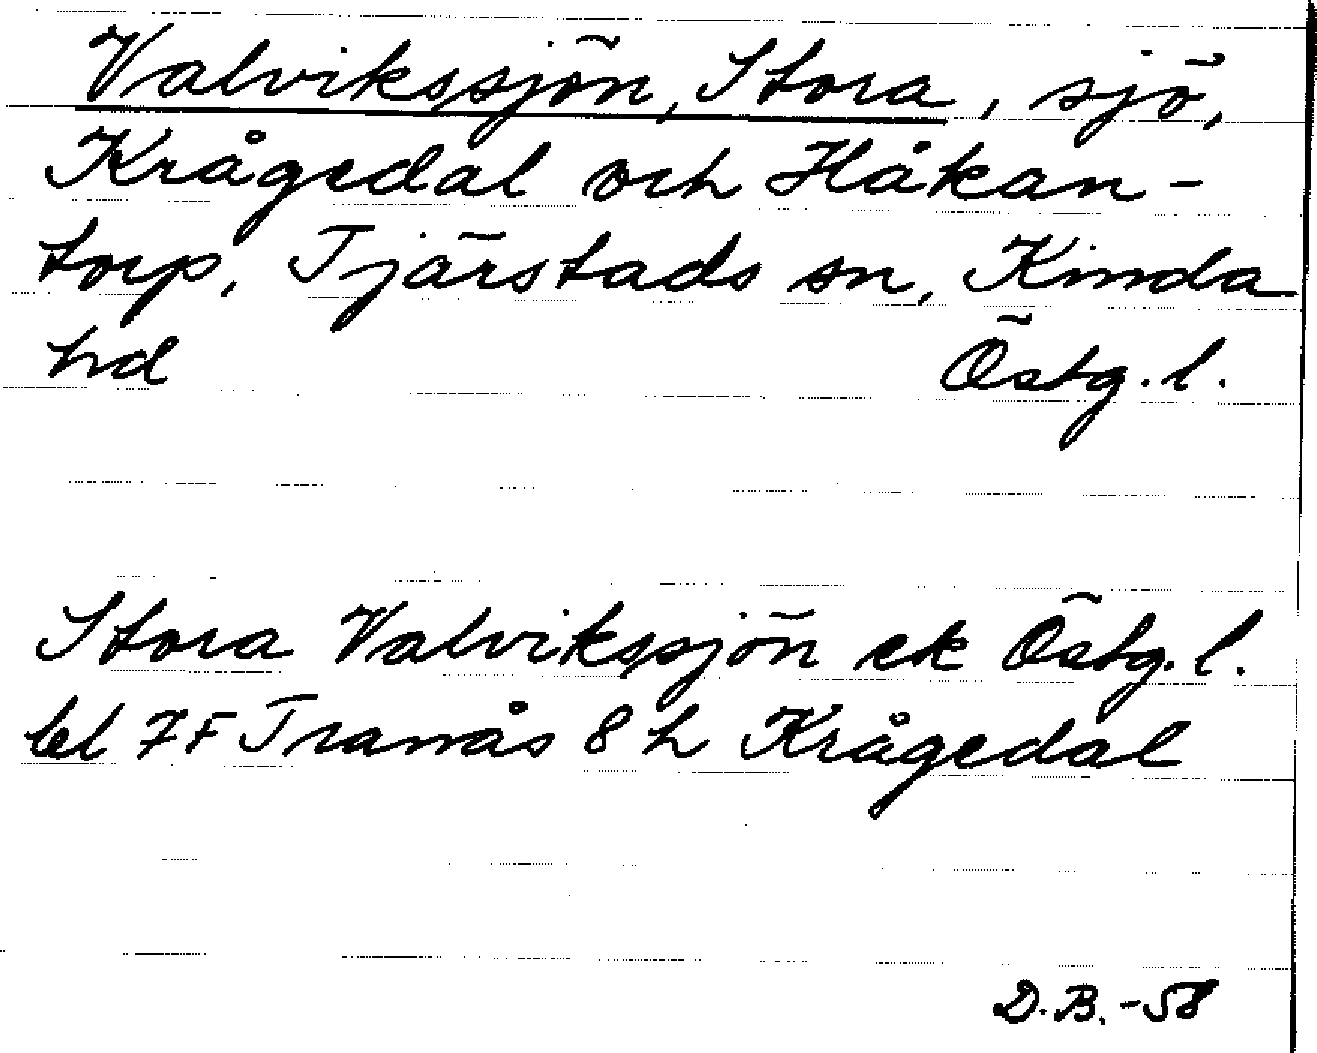 Valvikssjön, Stora, sjö,
Krågedal och Håkan-
torp, Tjärstads sn, Kinda
hd Östg. l.
Stora Valvikssjön ek Östg. l.
bl 7F Tranås 8 h Krågedal
D.B. -58